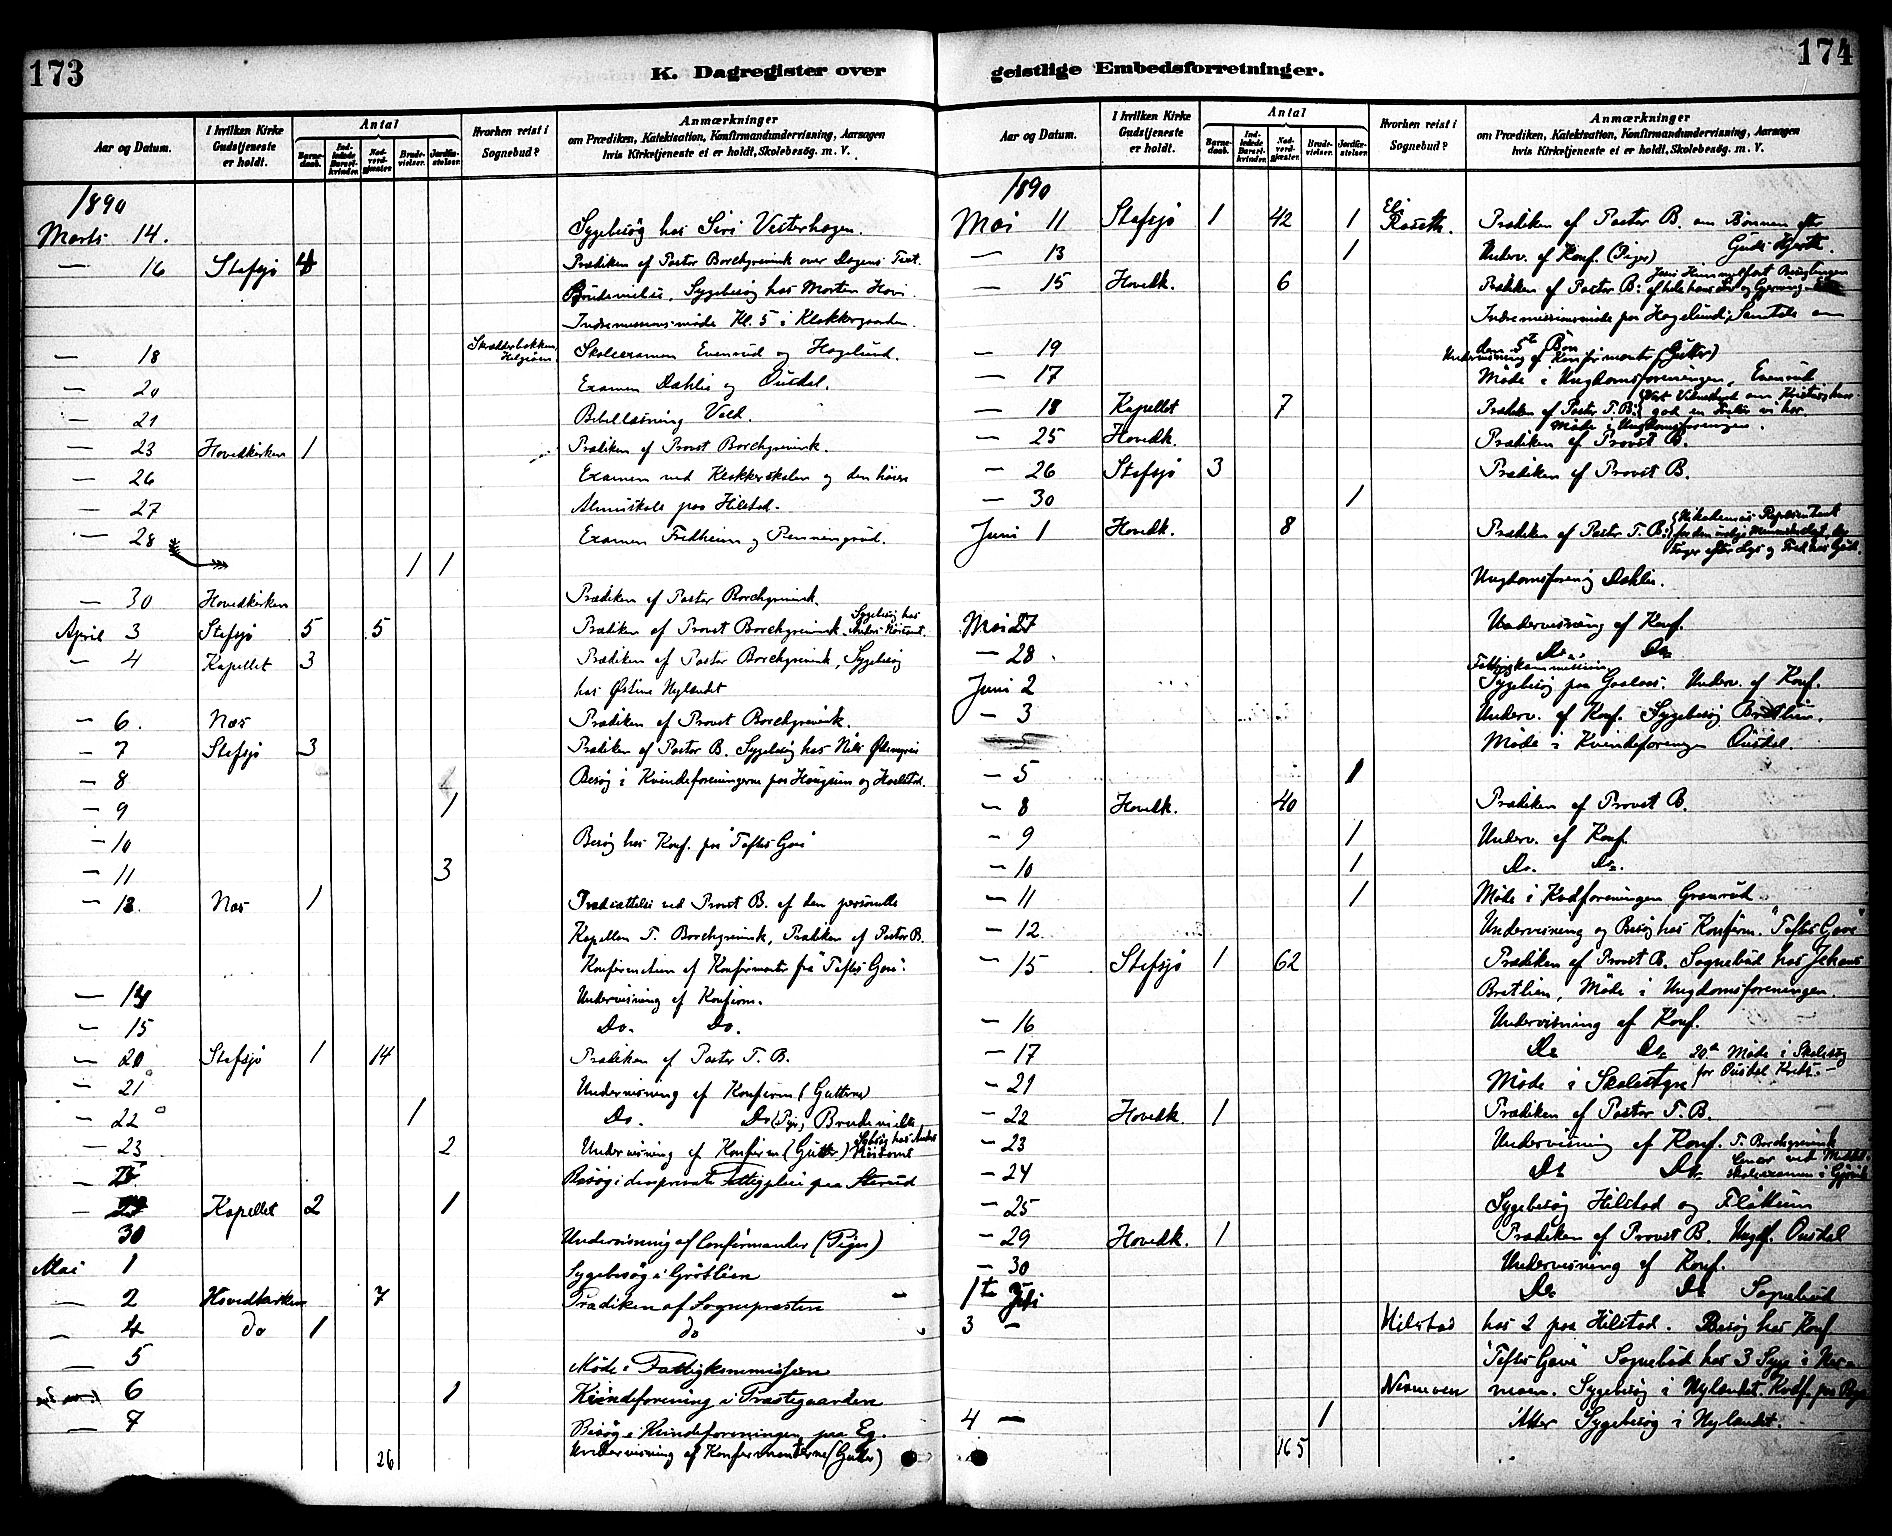 173
K. Dagregister over
Aar og Datum.
I hvilken Kirke Gudstjeneste er holdt.
Antal
Barnedaab.
Indledede Barselkvinder.
Nadverdgjæster.
Brudevielser.
Jordfæstelser.
Hvorhen reist i Sognebud?
Anmærkninger
om Prædiken, Katekisation, Konfirmandundervisning, Aarsagen
hvis Kirketjeneste ei er holdt, Skolebesøg. m. V.
1890
Marts 14. Sygebesøg hos Siri Vesterhagen.
— 16 Stefsjø 4 Prædiken af Pastor Borchgrevink over Dagens Text.
Brudevielse, Sygebesøg hos Morten Hovi.
Indremissionsmøde Kl. 5 i Klokkergaarden.
— 18 Skoleexamen Evenrud og Hagelund.
— 20 Examen Dahlie og Ousdal.
— 21 Bibellæsning Vold.
— 23 Hovedkirken 1 Prædiken af Provst Borchgrevink.
— 26 Examen ved Klokkerskolen og den høiere
— 27 Almuskole paa Hilstad.
— 28 Examen Fredheim og Penningrud.
1 1
— 30 Hovedkirken Prædiken af Pastor Borchgrevink.
April 3 Stefsjø 5 5 Prædiken af Provst Borchgrevink. Sygebesøg hos Anders
— 4 Kapellet 3 Prædiken af Pastor Borchgrevink, Sygebesøg
hos Østine Nylandet
— 6. Næs Prædiken af Provst Borchgrevink.
— 7 Stefsjø 3 Prædiken af Pastor B. Sygebesøg hos Nils
— 8 Besøg i Kvindeforeningerne paa Haugsrum og Hoelstad.
— 9 1
— 10 Besøg hos Konf. paa "Toftes Gave"
— 11 3
— 13. Næs 1 Indsættelse ved Provst B. af den personelle
Kapellan T. Borchgrevink, Prædiken af Pastor B.
Konfirmation af Konfirmanter fra "Toftes Gave".
— 14 Undervisning af Konfirm.
— 15 Do. Do.
— 20 Stefsjø 1 14 Prædiken af Pastor T. B.
— 21 Undervisning af Konfirm (Gutterne)
— 22 1 Do. Do (Pige) Brudevielse
— 23 2 Undervisning af Konfirm (Gutter) Sygebesøg hos Anders
Besøg i den private Fattigpleie paa Sterud
— Kapellet 2 1
30 Undervisning af Confirmander (Piger)
Mai 1 Sygebesøg i Grøtlien
— 2 Hovedkirken 7 Prædiken af Sognepræsten
— 4 do 1 do
— 5 Møde i Fattigkommissionen
— 6 1 Kvindeforening i Præstegaarden
— 7 Besøg i Kvindeforeningen paa Eg.
Undervisning af Konfirmanterne (Gutter)
26
174
geistlige Embedsforretninger.
Aar og Datum.
I hvilken Kirke Gudstjeneste er holdt.
Antal
Barnedaab.
Indledede Barselkvinder.
Nadverdgjæster.
Brudevielser.
Jordfæstelser.
Hvorhen reist i Sognebud?
Anmærkninger
om Prædiken, Katekisation, Konfirmandundervisning, Aarsagen
hvis Kirketjeneste ei er holdt, Skolebesøg. m. V.
1890
Mai 11 Stefsjø 1 42 1 Eli Roseth. Prædiken af Pastor B. om Bønnen efter
Guds Hjerte.
— 13 1 Underv. af Konf. (Piger)
— 15 Hovedk. 6 Prædiken af Pastor B: Jesu Himmelfart
Indremissionsmøde paa Hagelund; Samtale om
den 5te Bøn
— 19 Undervisning af Konfirmanter (Gutter)
— 17 Møde i Ungdomsforeningen, Evenrud
— 18 Kapellet 7 Prædiken af Pastor T. B:
Møde i Ungdomsforeningen.
— 25 Hovedk. Prædiken af Provst B.
— 26 Stefsjø 3 Prædiken af Provst B.
— 30 1
Juni 1 Hovedk. 8 Prædiken af Pastor T. B: Nikodemus
efter Lys og Fred hos Gud.
Ungdomsforening Dahlie.
Mai 27 Undervisning af Konf.
— 28. Do. Do.
Fattigkommission
Juni 2 Sygebesøg paa Gaalaas. Underv. af Konf.
— 3 Underv. af Konf. Sygebesøg Brætlien.
Møde i Kvindeforeningen Ousdal.
— 5 1
— 8 Hovedk. 40 Prædiken af Provst B.
— 9 1 Underv. af Konf.
— 10 1 Do. Do.
— 11 1 Møde i Kvdforeningen Granrud.
— 12 Undervisning og Besøg hos Konfirm. "Toftes Gave"
— 15 Stefsjø 1 62 Prædiken af Provst B. Sognebud hos Johans
Brætlien, Møde i Ungdomsforeningen.
— 16 Undervisning af Konf.
— 17 Do Do 20de Møde i Skolesag
for Ousdal Kreds.
— 21 Møde i Skolestyre
— 22 Hovedk. 1 Prædiken af Pastor T. B.
— 23 Undervisning af Konf. T. Borchgrevink
— 24 Do Do Censor ved Middelskoleexamen i Gjøvik
— 25 Sygebesøg Hilstad og Fløttum
— 29 Hovedk. 1 Prædiken af Provst B. Ungf. Ousdal
— 30 Undervisning af Konf.
1te Juli Do Do Sognebud
3 — Hilstad hos 2 paa Hilstad. Besøg hos Konf
"Toftes Gave" Sognebud hos 3 Syge i Næs
moen. Sygebesøg i Nylandet.
4 — 1 Atter Sygebesøg i Nylandet.
165